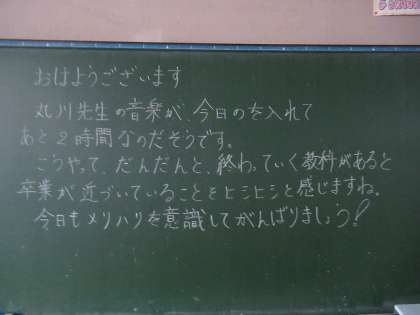 おはようございます
丸川先生の音楽が、今日のを入れて
あと2時間なのだそうです。
こうやって、だんだんと、終わっていく教科があると
卒業が近づいていることをヒシヒシと感じますね。
今日もメリハリを意識してがんばりましょう!